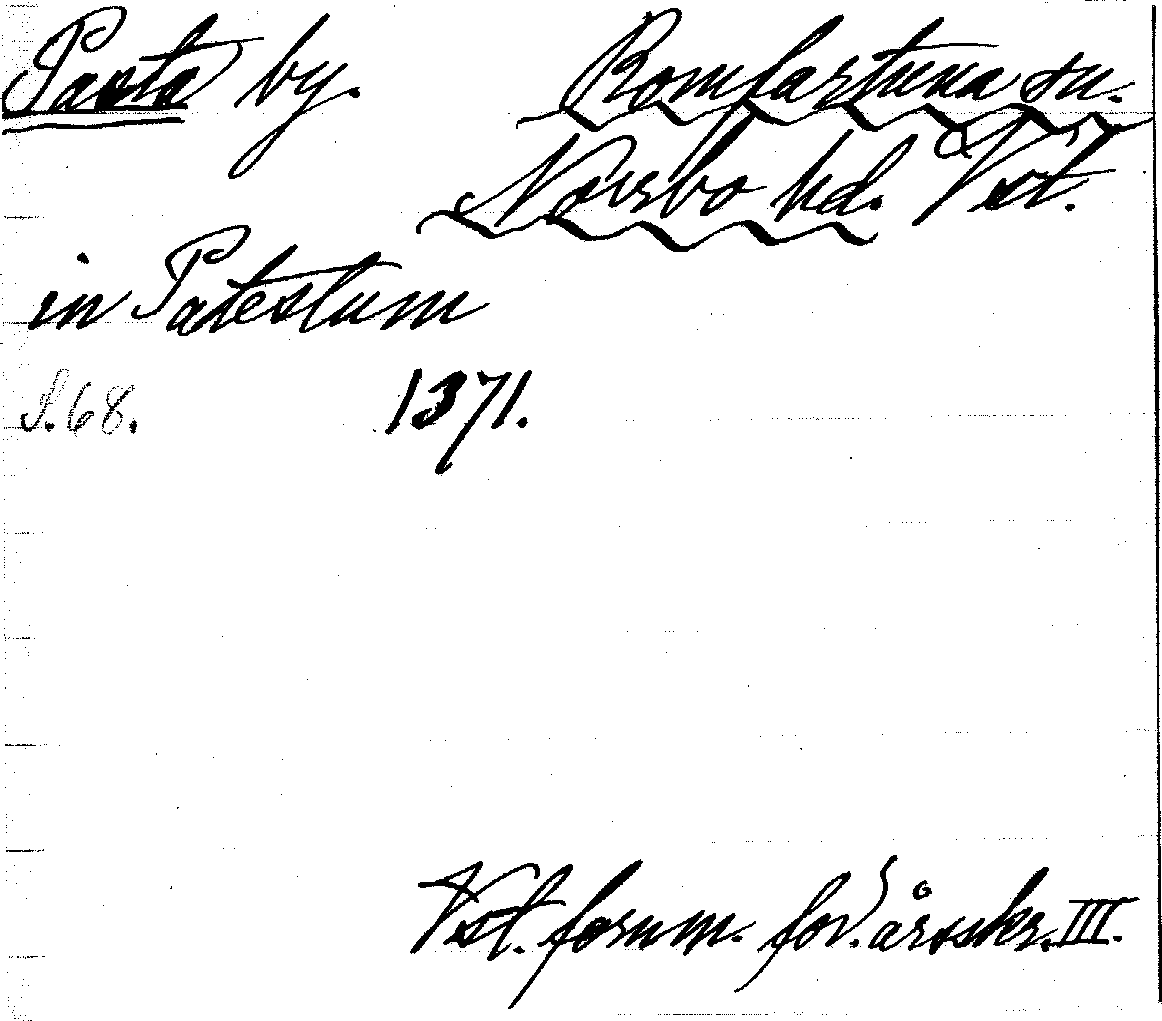 Pasta by. Romfartuna sn.
Norrbo hd. Vst.
in Patestum
S. 68. 1371.
Vst. fornm. för. årsskr. III.